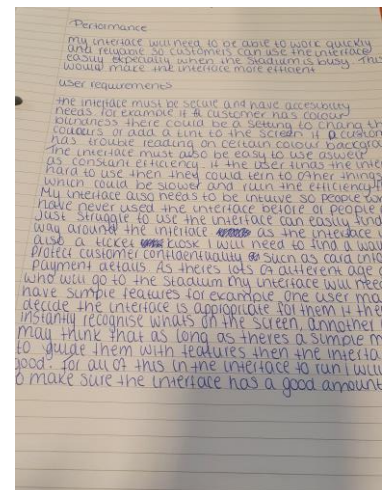 Performance
my interface will need to be able to work quickly
and reliable so customers can use the interface
easily especially when the stadium is busy. This
would make the interface more efficient
user requirements
the interface must be secure and have accesibility
needs. for example if a customer has colour
blindness there could be a setting to change th
colours or add a tint to the screen if a custom
has trouble reading on certain colour backgrou
The interface must also be easy to use aswell
as constant efficiency. if the user finds the inter
hard to use then they could tern to other things
which could be slower and ruin the efficiency
My interface also needs to be intuive so people w
have never used the interface before or people
Just struggle to use the interface can easily find
way around the interface as the interface
also a ticket kiosk I will need to find a wa
protect customer confidentuality such as card info
payment details. As theres lots of different age
who will go to the stadium my interface will need
have simple features for example one user ma
decide the interface is appropriate for them if the
instantly recognise whats on the screen, annother
may think that as long as theres a simple m
to guide them with features then the interfa
good. for all of this in the interface to run i will
o make sure the interface has a good amount